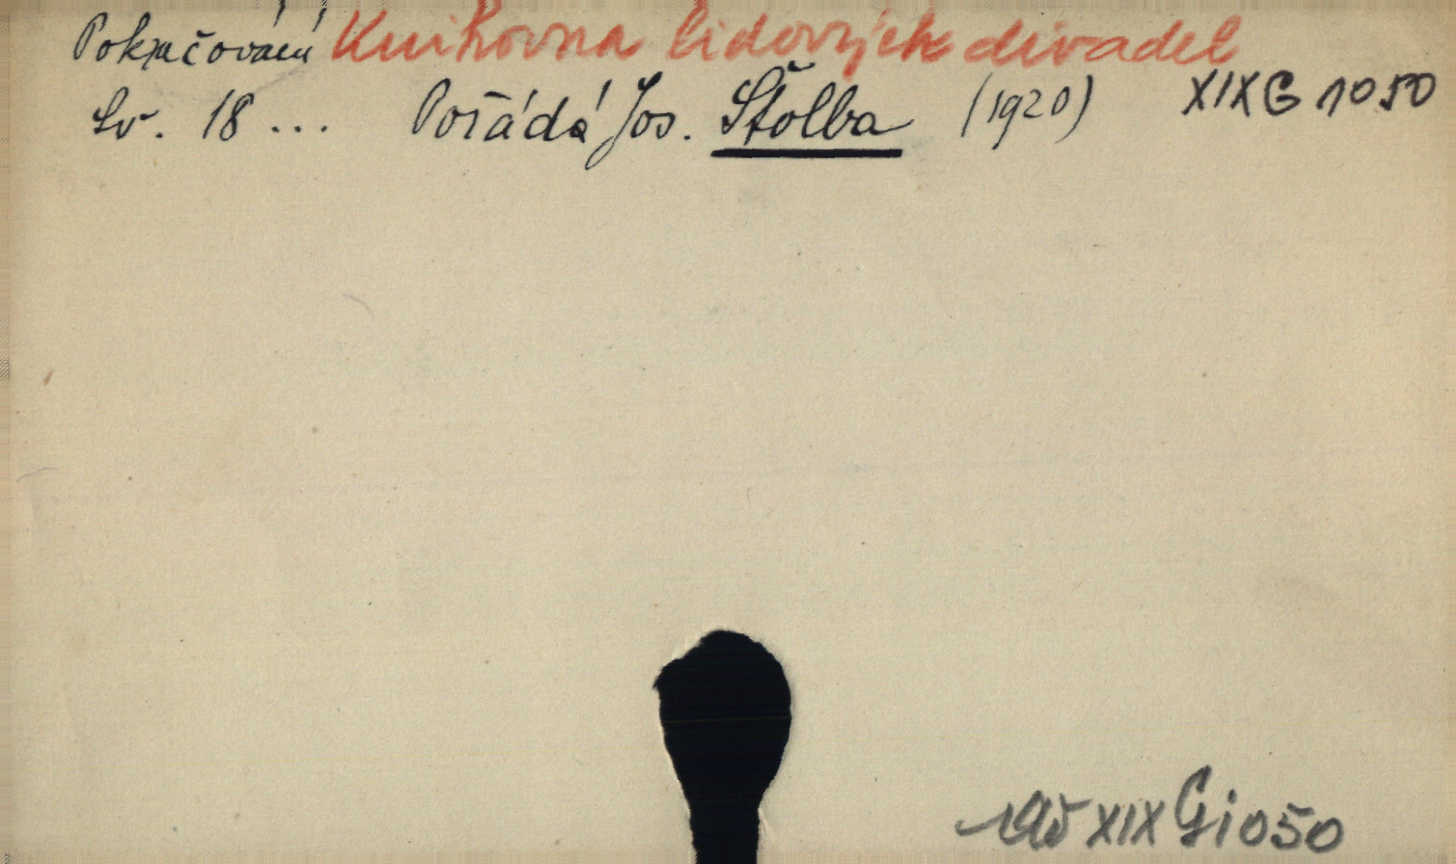 Pokračování Knihovna lidových divadel
Sv. 18 ... Pořádá Jos. Štolba (1920) XIX G 1050
XIX G 1050